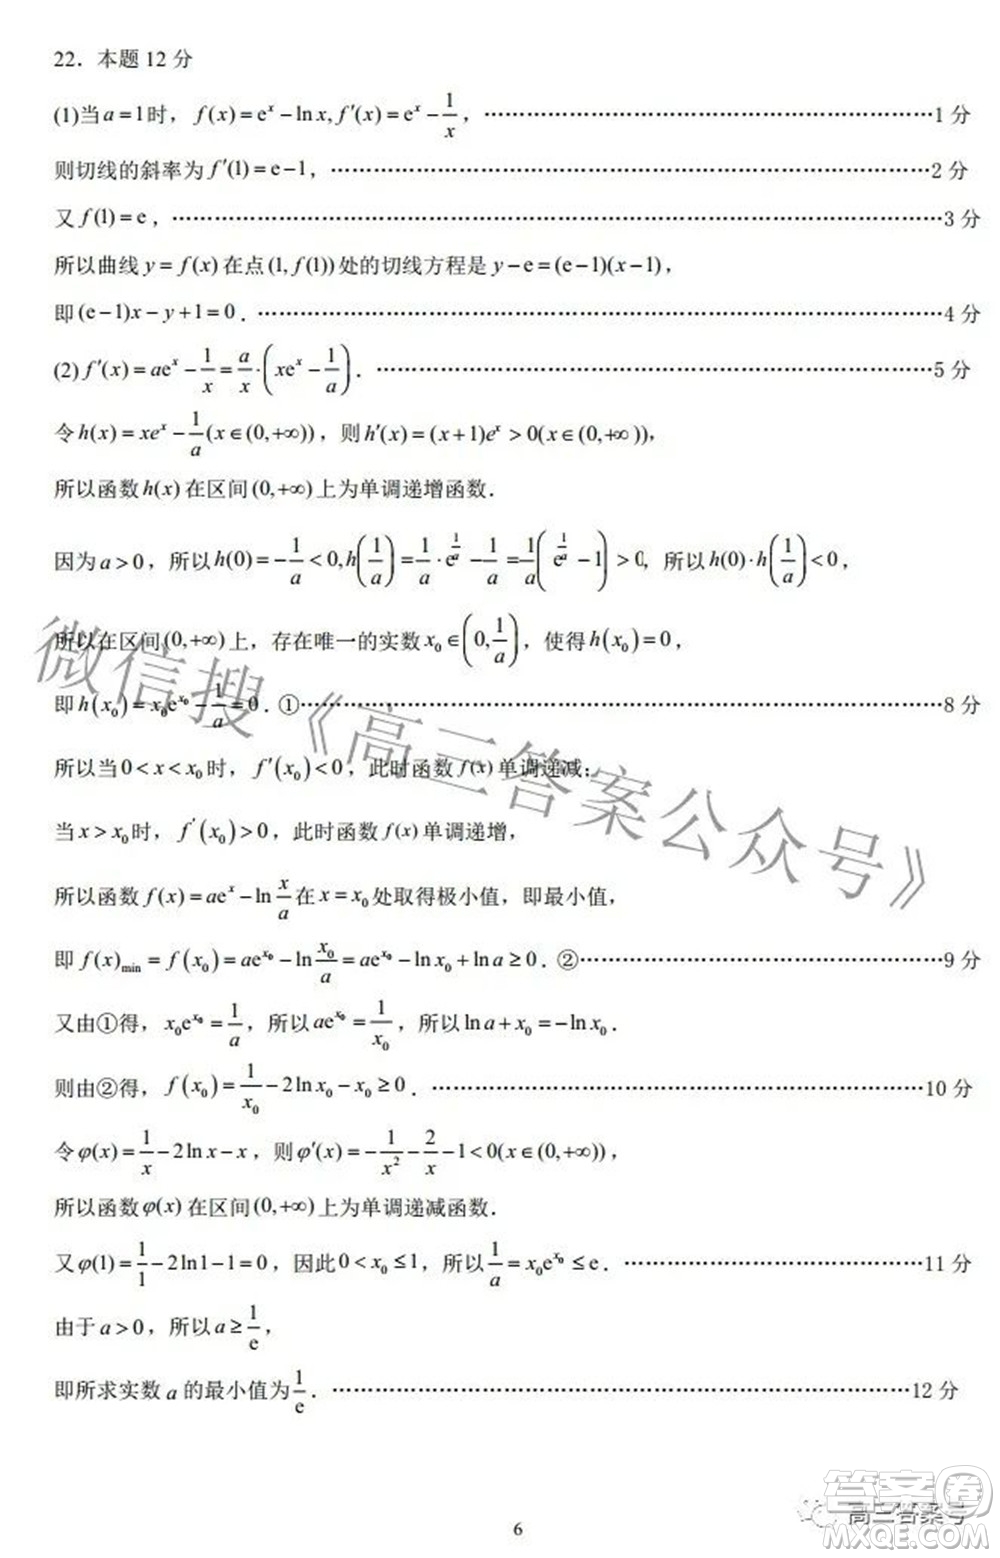 22．本题 12 分
(1)当 a=1时，f(x)=eˣ−ln x, f′(x)=eˣ−1/x，……………………………………1 分
则切线的斜率为 f′(1)=e−1，……………………………………2 分
又 f(1)=e，……………………………………3 分
所以曲线 y=f(x) 在点 (1, f(1)) 处的切线方程是 y−e=(e−1)(x−1)，
即 (e−1)x−y+1=0．……………………………………4 分
(2) f′(x)=aeˣ−1/x=a/x·(xeˣ−1/a)．……………………………………5 分
令 h(x)=xeˣ−1/a(x∈(0,+∞))，则 h′(x)=(x+1)eˣ>0(x∈(0,+∞))，
所以函数 h(x) 在区间 (0,+∞) 上为单调递增函数．
因为 a>0，所以 h(0)=−1/a<0, h(1/a)=1/a·e^(1/a)−1/a=1/a(e^(1/a)−1)>0，所以 h(0)·h(1/a)<0，
所以在区间 (0,+∞) 上，存在唯一的实数 x₀∈(0,1/a)，使得 h(x₀)=0，
即 h(x₀)=x₀e^(x₀)−1/a=0．①……………………………………8 分
所以当 0<x<x₀ 时，f′(x₀)<0，此时函数 f(x) 单调递减；
当 x>x₀ 时，f′(x₀)>0，此时函数 f(x) 单调递增，
所以函数 f(x)=aeˣ−ln x/a 在 x=x₀ 处取得极小值，即最小值，
即 f(x)min=f(x₀)=ae^(x₀)−ln x₀/a=ae^(x₀)−ln x₀+ln a≥0．②……………………………………9 分
又由①得，x₀e^(x₀)=1/a，所以 ae^(x₀)=1/x₀，所以 ln a+x₀=−ln x₀．
则由②得，f(x₀)=1/x₀−2ln x₀−x₀≥0．……………………………………10 分
令 φ(x)=1/x−2ln x−x，则 φ′(x)=−1/x²−2/x−1<0(x∈(0,+∞))，
所以函数 φ(x) 在区间 (0,+∞) 上为单调递减函数．
又 φ(1)=1/1−2ln1−1=0，因此 0<x₀≤1，所以 1/a=x₀e^(x₀)≤e．……………………………………11 分
由于 a>0，所以 a≥1/e，
即所求实数 a 的最小值为 1/e．……………………………………12 分
6
微信搜《高三答案公众号》
高三答案号
答案圈
MXQE.COM